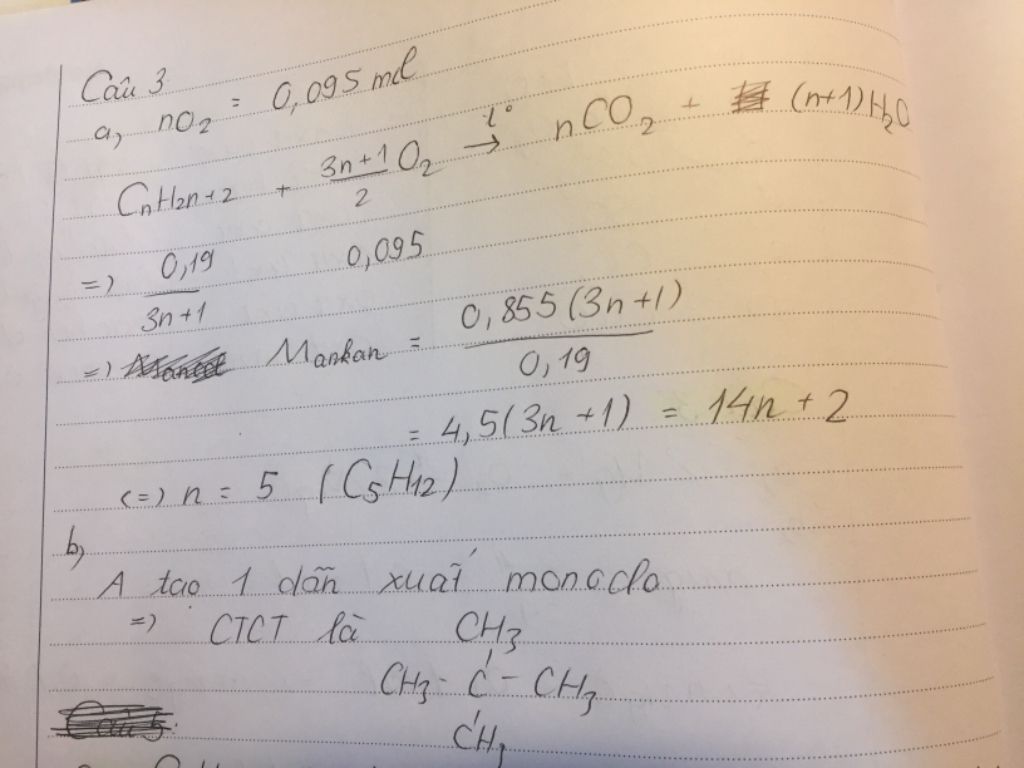 Câu 3
a, nO2 = 0,095 mol
CnH2n+2 + 3n+1/2 O2 t°→ nCO2 + (n+1)H2O
=) 0,19/3n+1 0,095
=) Mankan = 0,855(3n+1)/0,19
= 4,5(3n+1) = 14n+2
(=) n = 5 (C5H12)
b,
A tạo 1 dẫn xuất monoclo
=) CTCT là CH3
CH3 - C - CH3
CH3